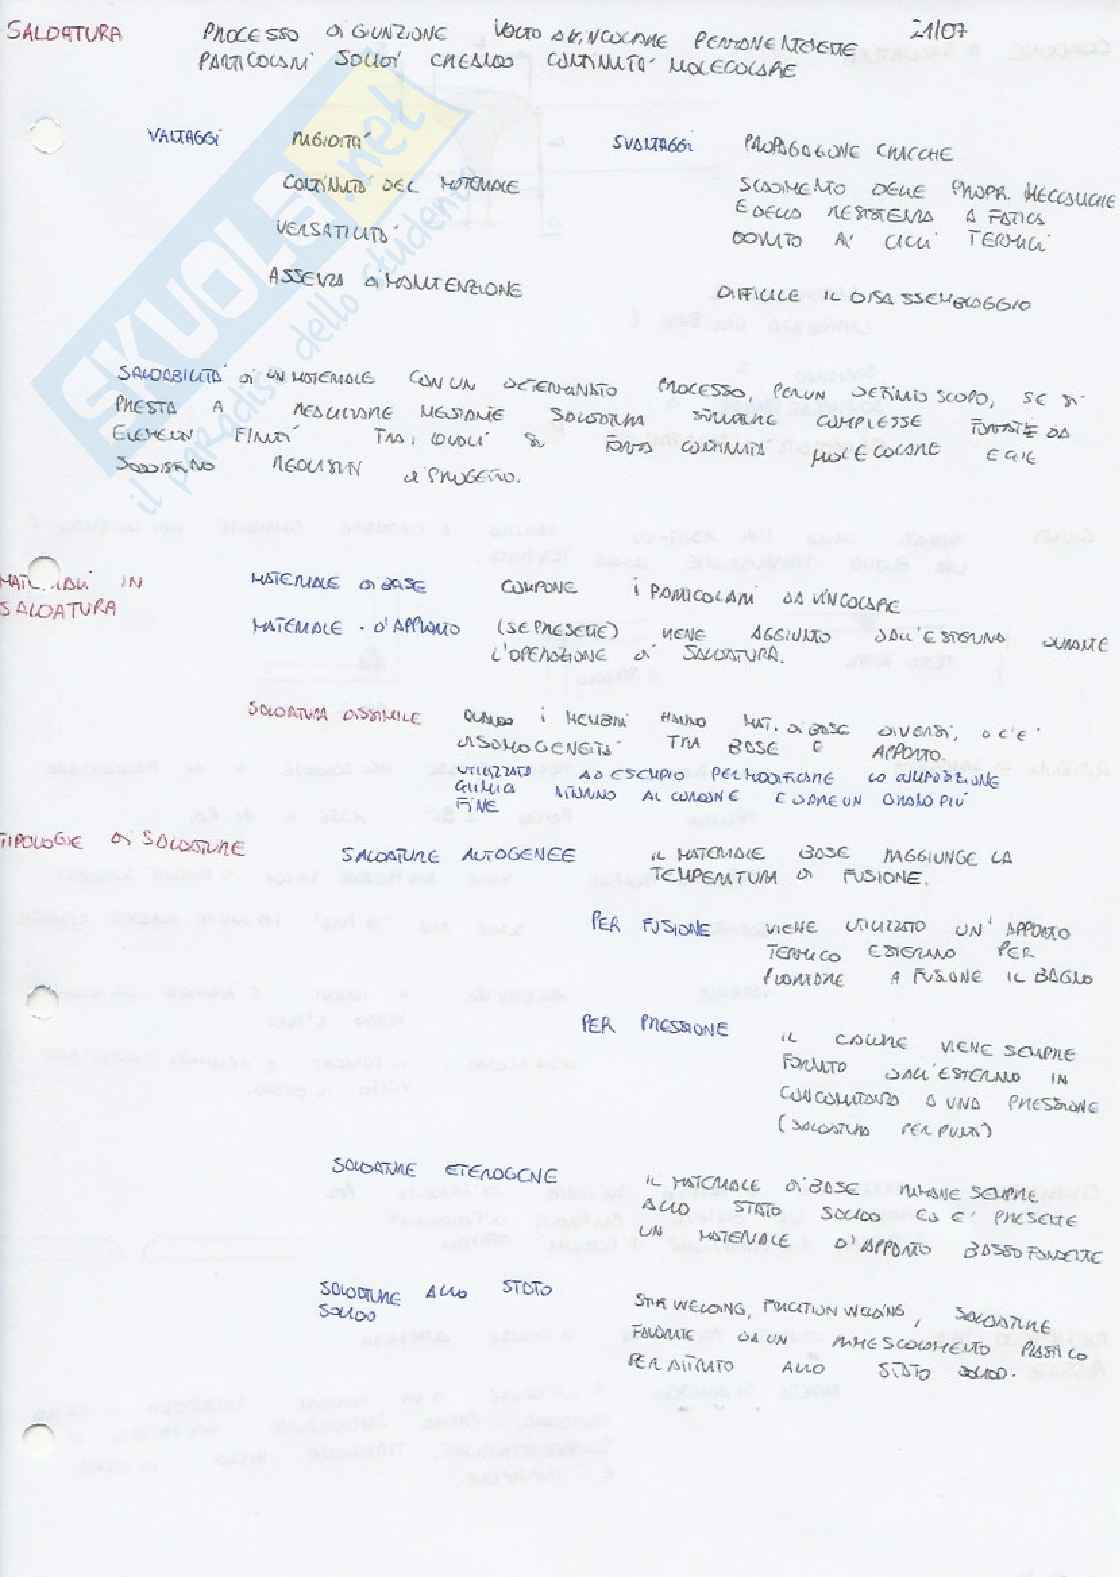 SALDATURA PROCESSO DI GIUNZIONE VOLTO A VINCOLARE PERMANENTEMENTE 21/07
PARTICOLARI SOLIDI CREANDO CONTINUITA' MOLECOLARE
VANTAGGI RIGIDITA' SVANTAGGI PROPAGAZIONE CRICCHE
CONTINUITA DEL MATERIALE SCADIMENTO DELLE PROPR. MECCANICHE
E DELLA RESISTENZA A FATICA
VERSATILITA' DOVUTO AI CICLI TERMICI
ASSENZA DI MANUTENZIONE DIFFICILE IL DISASSEMBLAGGIO
SKUOLA.net
il paradiso dello studente
SALDABILITA' DI UN MATERIALE CON UN DETERMINATO PROCESSO, PER UN DEFINITO SCOPO, SE SI
PRESTA A REALIZZARE MEDIANTE SALDATURA STRUTTURE COMPLESSE FORMATE DA
ELEMENTI FINITI TRA I QUALI SI FORMA CONTINUITA MOLECOLARE E CHE
SODDISFINO REQUISITI DI PROGETTO.
MATERIALI IN SALDATURA MATERIALE DI BASE COMPONE I PARTICOLARI DA VINCOLARE
MATERIALE D'APPORTO (SE PRESENTE) VIENE AGGIUNTO DALL'ESTERNO DURANTE
L'OPERAZIONE DI SALDATURA.
SALDATURA DISSIMILE QUANDO I MEMBRI HANNO MAT. DI BASE DIVERSI, O C'E'
DISOMOGENEITA' TRA BASE E APPORTO.
UTILIZZATO AD ESEMPIO PER MODIFICARE LA COMPOSIZIONE
CHIMICA ATTORNO AL CORDONE E DARE UN GRANO PIÙ
FINE
TIPOLOGIE DI SALDATURE SALDATURE AUTOGENEE IL MATERIALE BASE RAGGIUNGE LA
TEMPERATURA DI FUSIONE.
PER FUSIONE VIENE UTILIZZATO UN' APPORTO
TERMICO ESTERNO PER
PORTARE A FUSIONE IL BAGNO
PER PRESSIONE IL CALORE VIENE SEMPRE
FORNITO DALL'ESTERNO IN
CONCOMITANZA A UNA PRESSIONE
(SALDATURA PER PUNTI)
SALDATURE ETEROGENE IL MATERIALE DI BASE RIMANE SEMPRE
ALLO STATO SOLIDO ED E' PRESENTE
UN MATERIALE D'APPORTO BASSO FONDENTE
SALDATURE ALLO STATO SOLIDO STIR WELDING, FRICTION WELDING, SALDATURE
FORMATE DA UN RIMESCOLAMENTO PLASTICO
PER ATTRITO ALLO STATO SOLIDO.